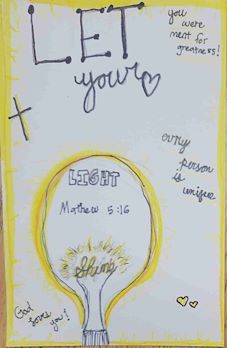 LET
your
you
were
ment for
greatness!
every
person
is
unique
LIGHT
Mathew 5:16
Shine
God
loves you!